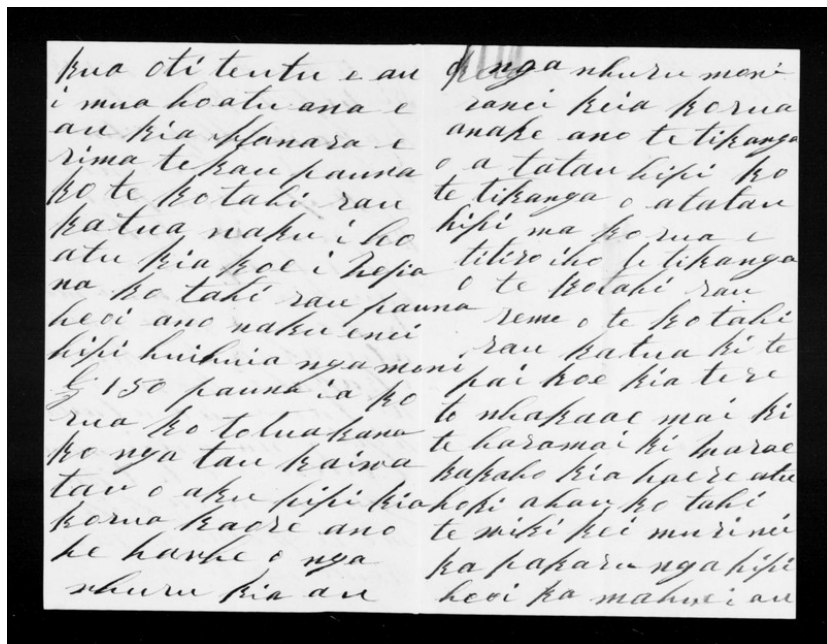 kua oti te utu e au
i mua hoatu ana e
au kia Manara e
rima te kau pauna
ko te kotahi rau
katua naku i ho
atu kia koe i Nepia
na ko tahi rau pauna
heoi ano naku enei
hipi huihuia nga moni
£ 150 pauna ia ko
rua ko to tuakana
ko nga tau kaiwa
tau o aku hipi kia
korua kaore ano
he hawhe o nga
whuru kia au
o nga whuru moni
ranei keia korua
anake ano te tikanga
o a tatau hipi ko
te tikanga o atatau
hipi ma korua e
titiro iho te tikanga
o te kotahi rau
reme o te kotahi
rau katua ki te
pai koe kia tere
to whakaae mai ki
te haramai ki marae
kakaho kia haere atu
hoki ahau ko tahi
te wiki kei muri nei
ka pakaru nga hipi
heoi ka mahue i au